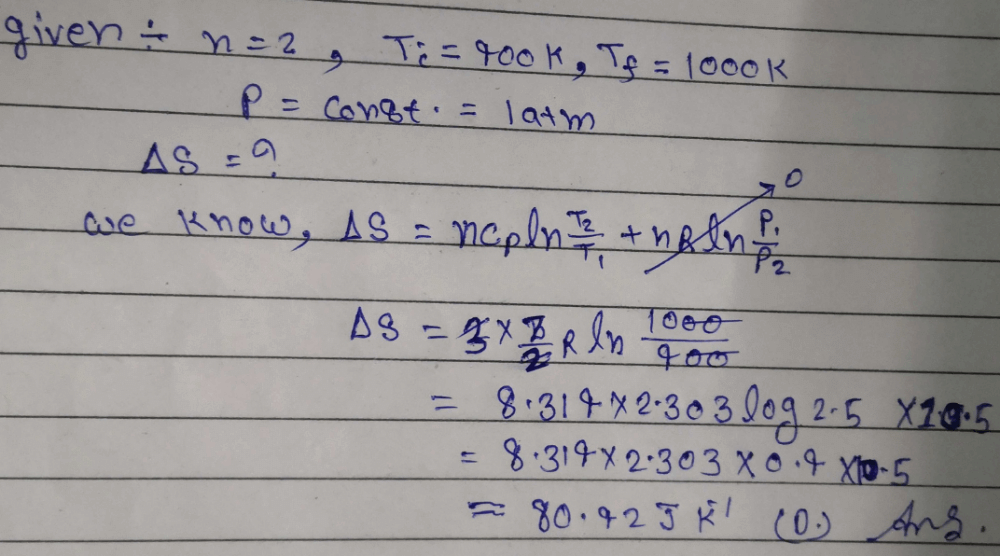 given ÷ n = 2, Ti = 400K, Tf = 1000K
P = Const. = 1atm
ΔS = ?
we know, ΔS = nCp ln T2/T1 + nR ln P1/P2 → 0
ΔS = 3 × 7/2 R ln 1000/400
= 8.314 × 2.303 log 2.5 × 10.5
= 8.314 × 2.303 × 0.4 × 10.5
= 80.42 J K⁻¹ (D.) Ans.